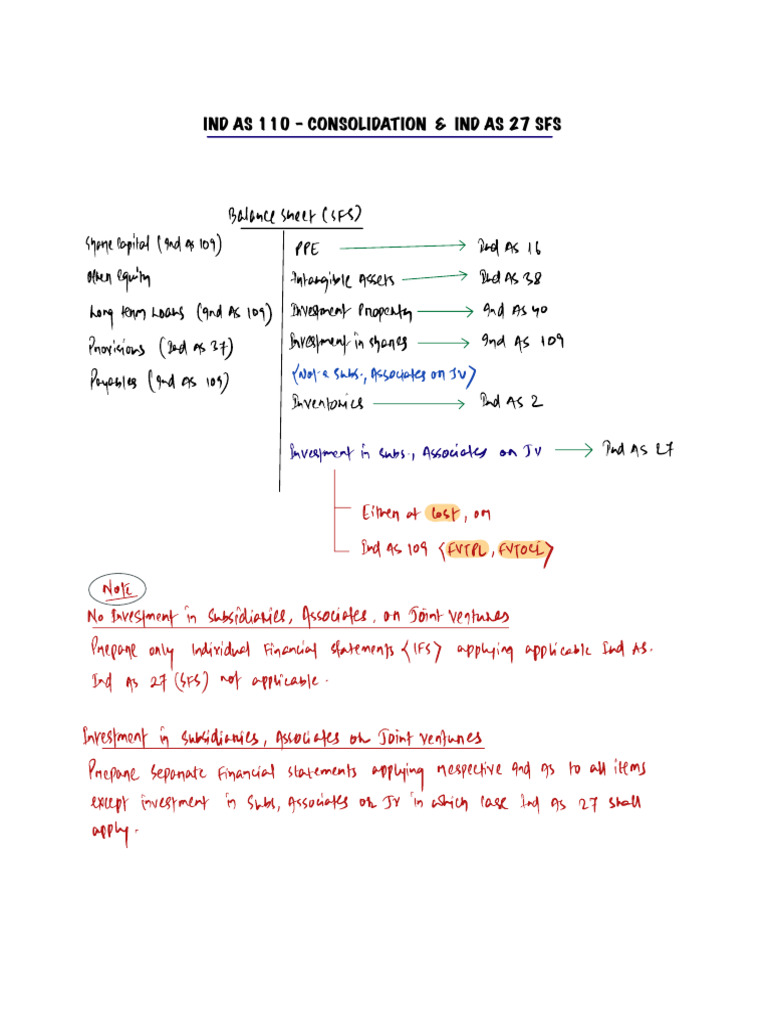 IND AS 110 - CONSOLIDATION & IND AS 27 SFS
Balance Sheet (SFS)
Share Capital (Ind AS 109)
Other Equity
Long term Loans (Ind AS 109)
Provisions (Ind AS 37)
Payables (Ind AS 109)
PPE → Ind AS 16
Intangible Assets → Ind AS 38
Investment Property → Ind AS 40
Investment in shares → Ind AS 109
(Not a Subs., Associates or JV)
Inventories → Ind AS 2
Investment in subs., Associates or JV → Ind AS 27
Either at Cost, or
Ind AS 109 <FVTPL, FVTOCI>
Note
No Investment in Subsidiaries, Associates, or Joint Ventures
Prepare only Individual Financial Statements <IFS> applying applicable Ind AS.
Ind AS 27 (SFS) not applicable.
Investment in Subsidiaries, Associates or Joint Ventures
Prepare Separate Financial Statements applying respective Ind AS to all items
except investment in Subs, Associates or JV in which case Ind AS 27 shall
apply.